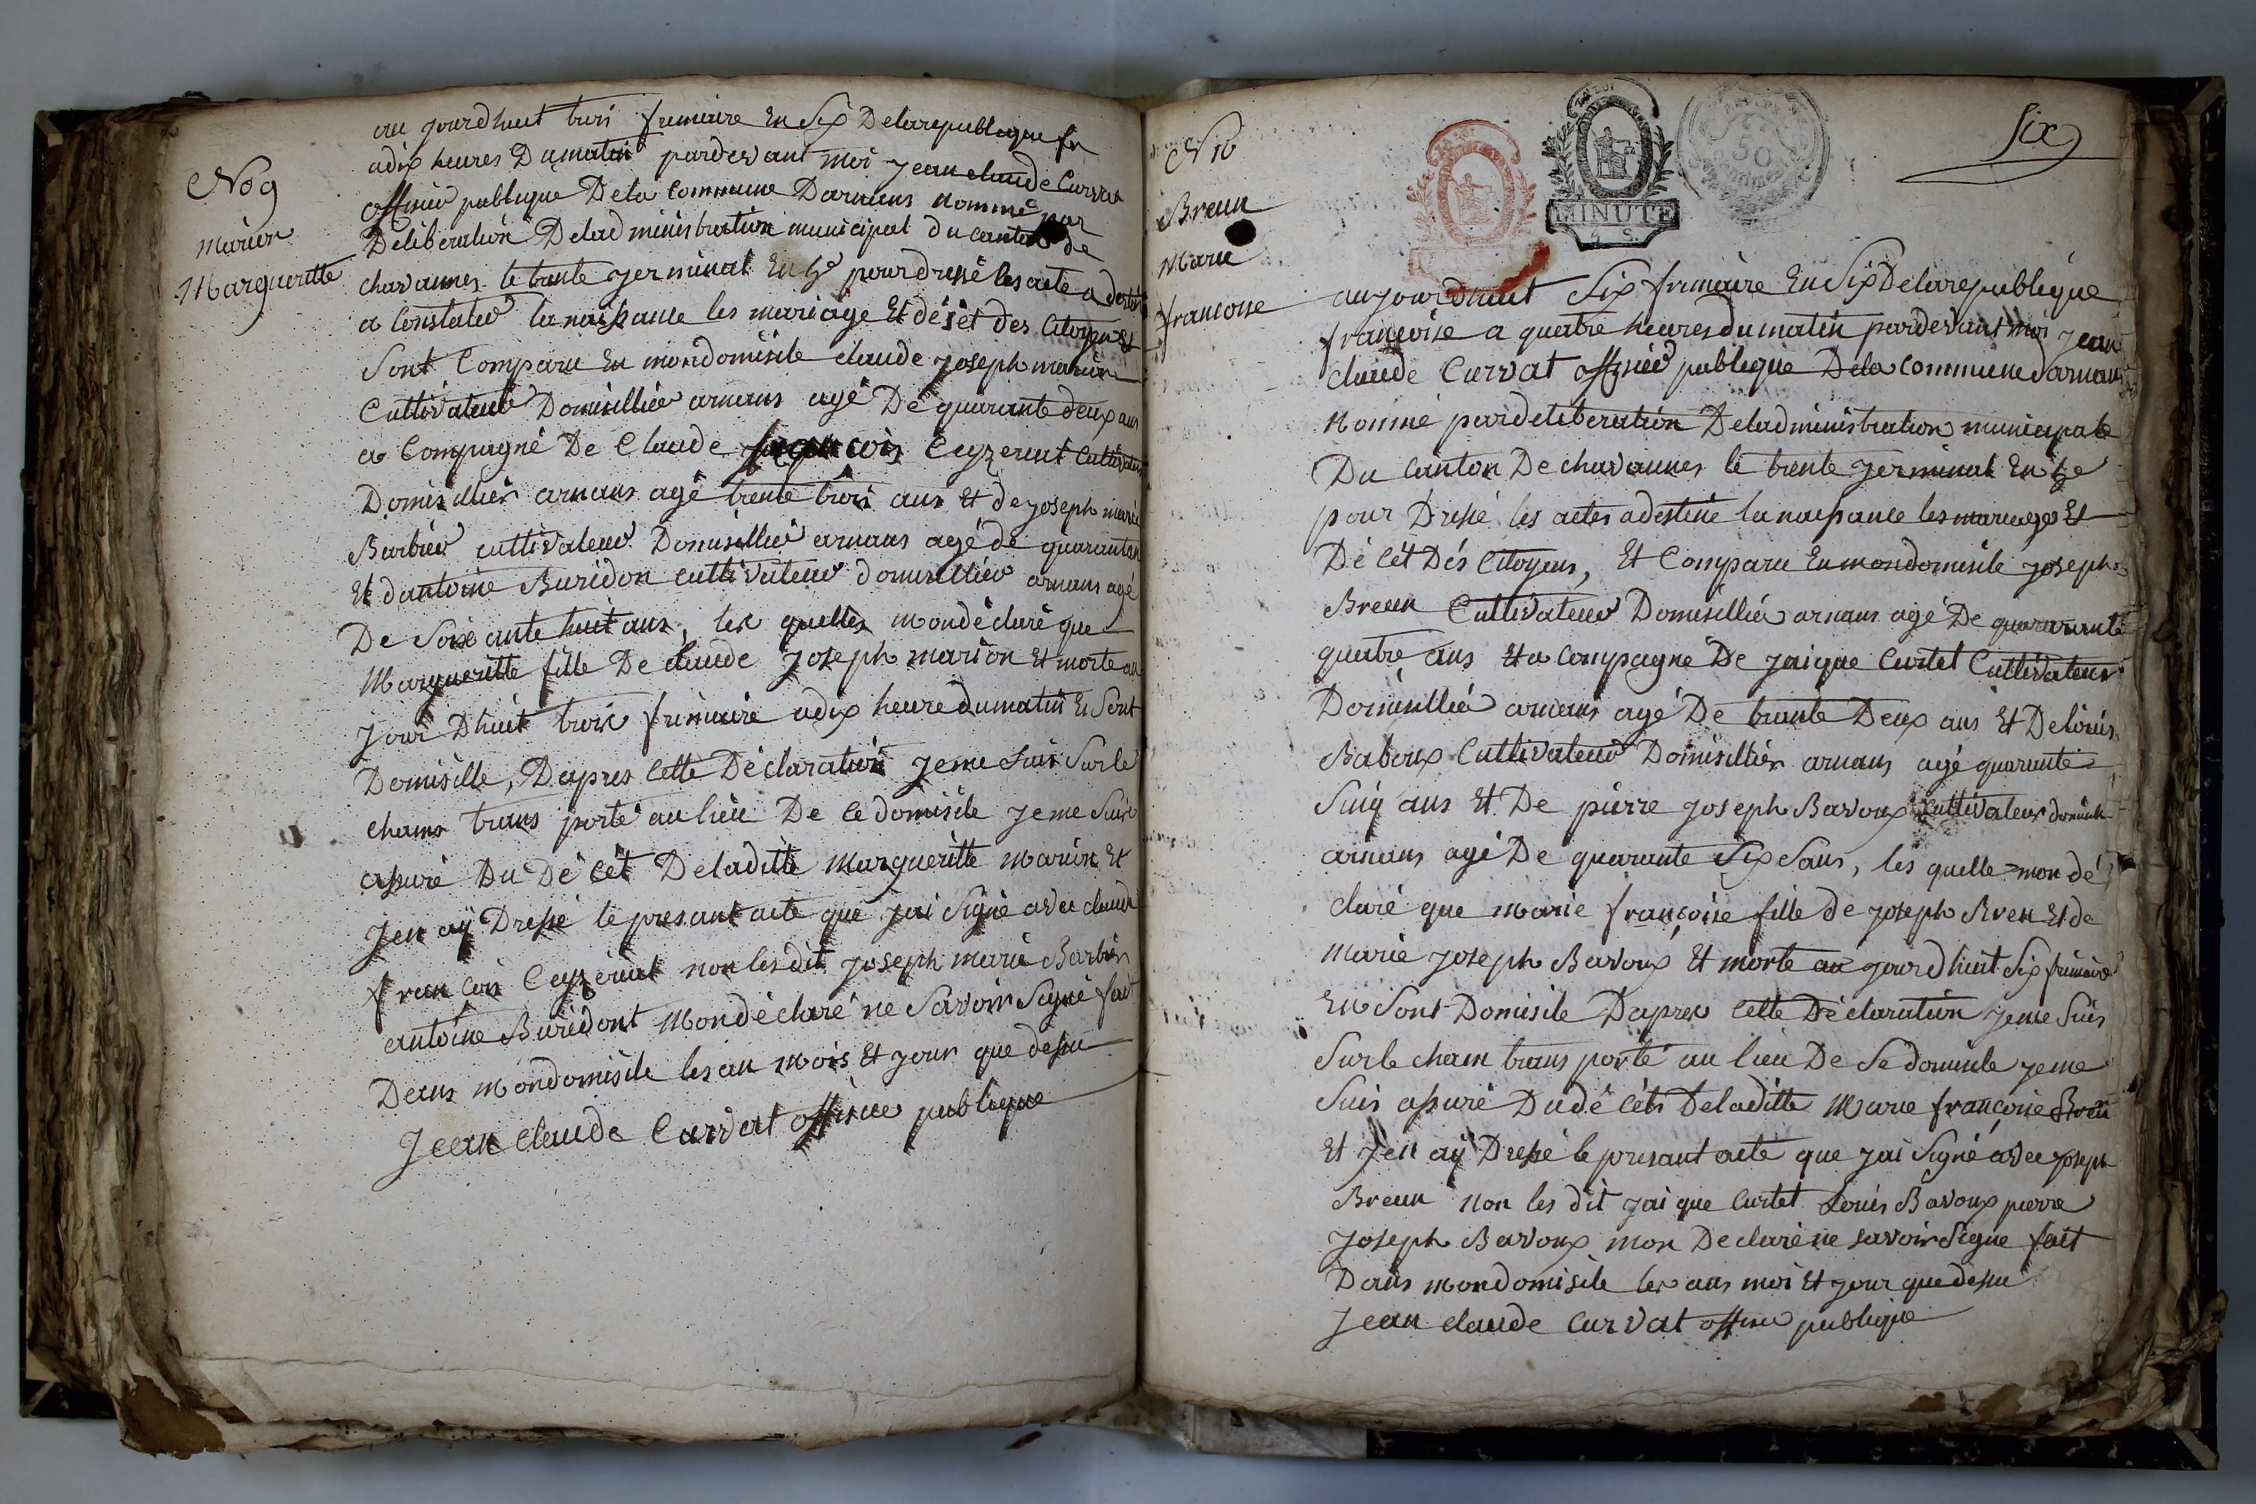 No 9
marion
Margueritte
au jourdhuit trois frimaire En Six Delarepublique fr
adix heures Dumatin pardevant moi jean claude Curvat
officier publique Dela Commune Darnans nommé par
Deliberation Deladministration municipal du canton de
chavannes le trente germinal En 5e pour dressé les acte a destiné
a Constater la naissance les mariage Et déset des Citoyen Et
Sont Comparu En mondomisile claude joseph marion
Cultivateur Domisillier arnans agé De quarante deux ans
a Compagné De Claude françois Ceyzeriat Cultivateur
Domisillier arnans agé trente trois ans Et de joseph marie
Barbier cultivateur Domisillier arnans agé de quarante
Et dantoine Buridon cultivateur domisillier arnans agé
De Soixante huit ans, les quelles mondéclaré que
Margueritte fille De claude joseph marion Et morte au
jour Dhuit trois frimaire adix heure dumatin En Sont
Domisille, Dapres Cette Déclaration jeme Suis Surle
cham trans porté au lieu De Ce domisile jeme Suis
assuré Du Dé Cêt Deladitte Margueritte Marion Et
jen aÿ Dressé le presant acte que jai Signé avec claude
françois Ceyzeriat non lesdit joseph marie Barbier
antoine Buridont Mondéclaré ne Savoir Signé fait
Dans mondomisile les an mois Et jour que dessu
Jean claude Curvat officier publique
N 10
Breun
Marie
francoise
MINUTE
50
Six
aujourdhuit Six frimaire En Six Delarepublique
françoise a quatre heures du matin pardevant moi jean
claude Curvat officier publique Dela commune darnans
Nommé pardeliberation Deladministration municipale
Du Canton De chavannes le trente germinal En 5e
pour Dressé les actes adestiné la naissance les mariages Et
Dé cét Dés Citoyens, Et Comparu En mondomisile joseph
Breun Cultivateur Domisillié arnans agé De quarante
quatre ans Et a Compagné De jaique Curtet Cultivateur
Domisillié arnans agé De trante Deux ans Et De louis
Baboux Cultivateur Domisillier arnans agé quarante
Sinq ans Et De pierre joseph Bavoux Cultivateur domisile
arnans agé De quarante Six Sans, les quelle mon dé
claré que marie françoise fille de joseph Breu Et de
Marie joseph Bavoux Et morte au jourdhuit Six frimaire
En Sont Domisile Dapres Cette Déclaration jeme Suis
Surle cham trans porté au lieu De Se domisile jeme
Suis assuré Dudé Céts Deladitte Marie françoise Breu
Et jen aÿ Dressé le presant acte que jai Signé avec joseph
Breun non les dit jai que Curtet Louis Bavoux pierre
joseph Bavoux mon Declaré ne savoir Signe fait
Dans mondomisile les ans moi Et jour que dessu
Jean claude Curvat officier publique